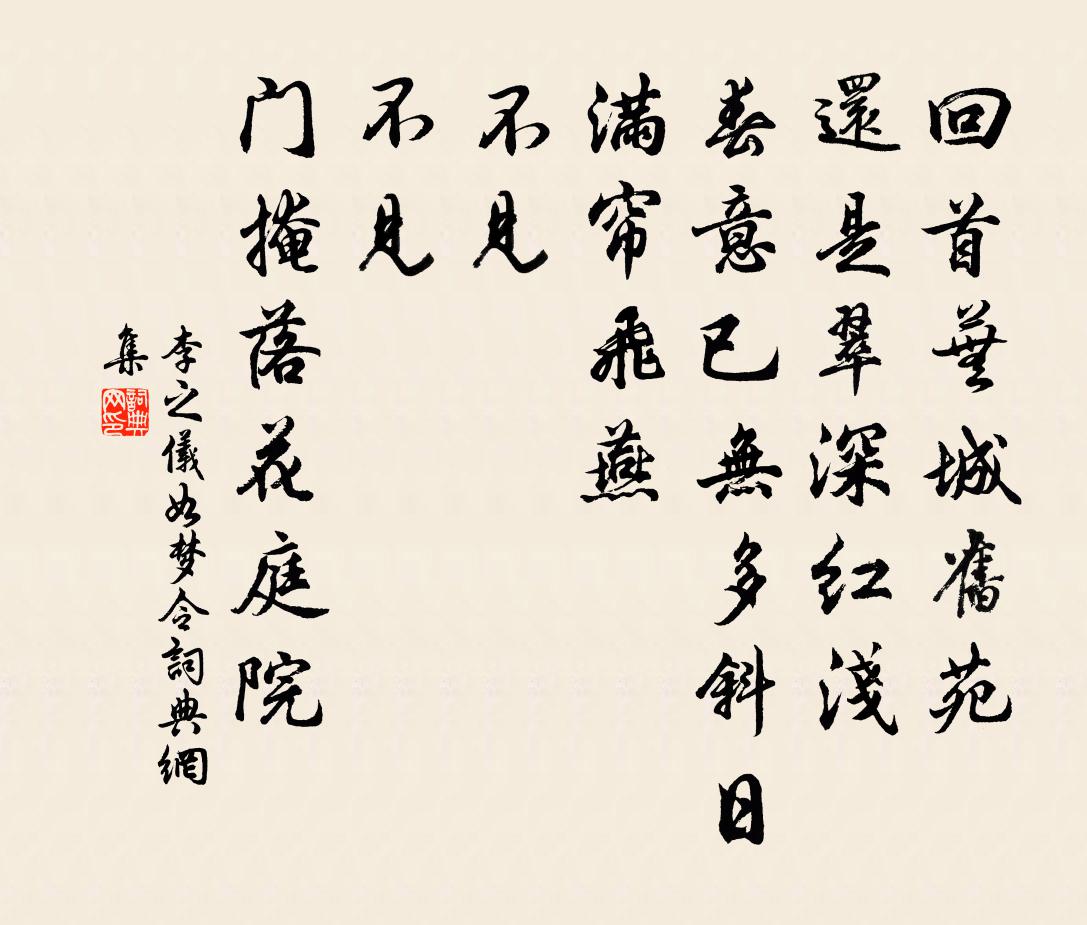 回首蕪城舊苑
還是翠深紅淺
春意已無多斜日
滿帘飛燕
不見
不見
门掩落花庭院
李之儀如梦令詞典網
集
詞典网印